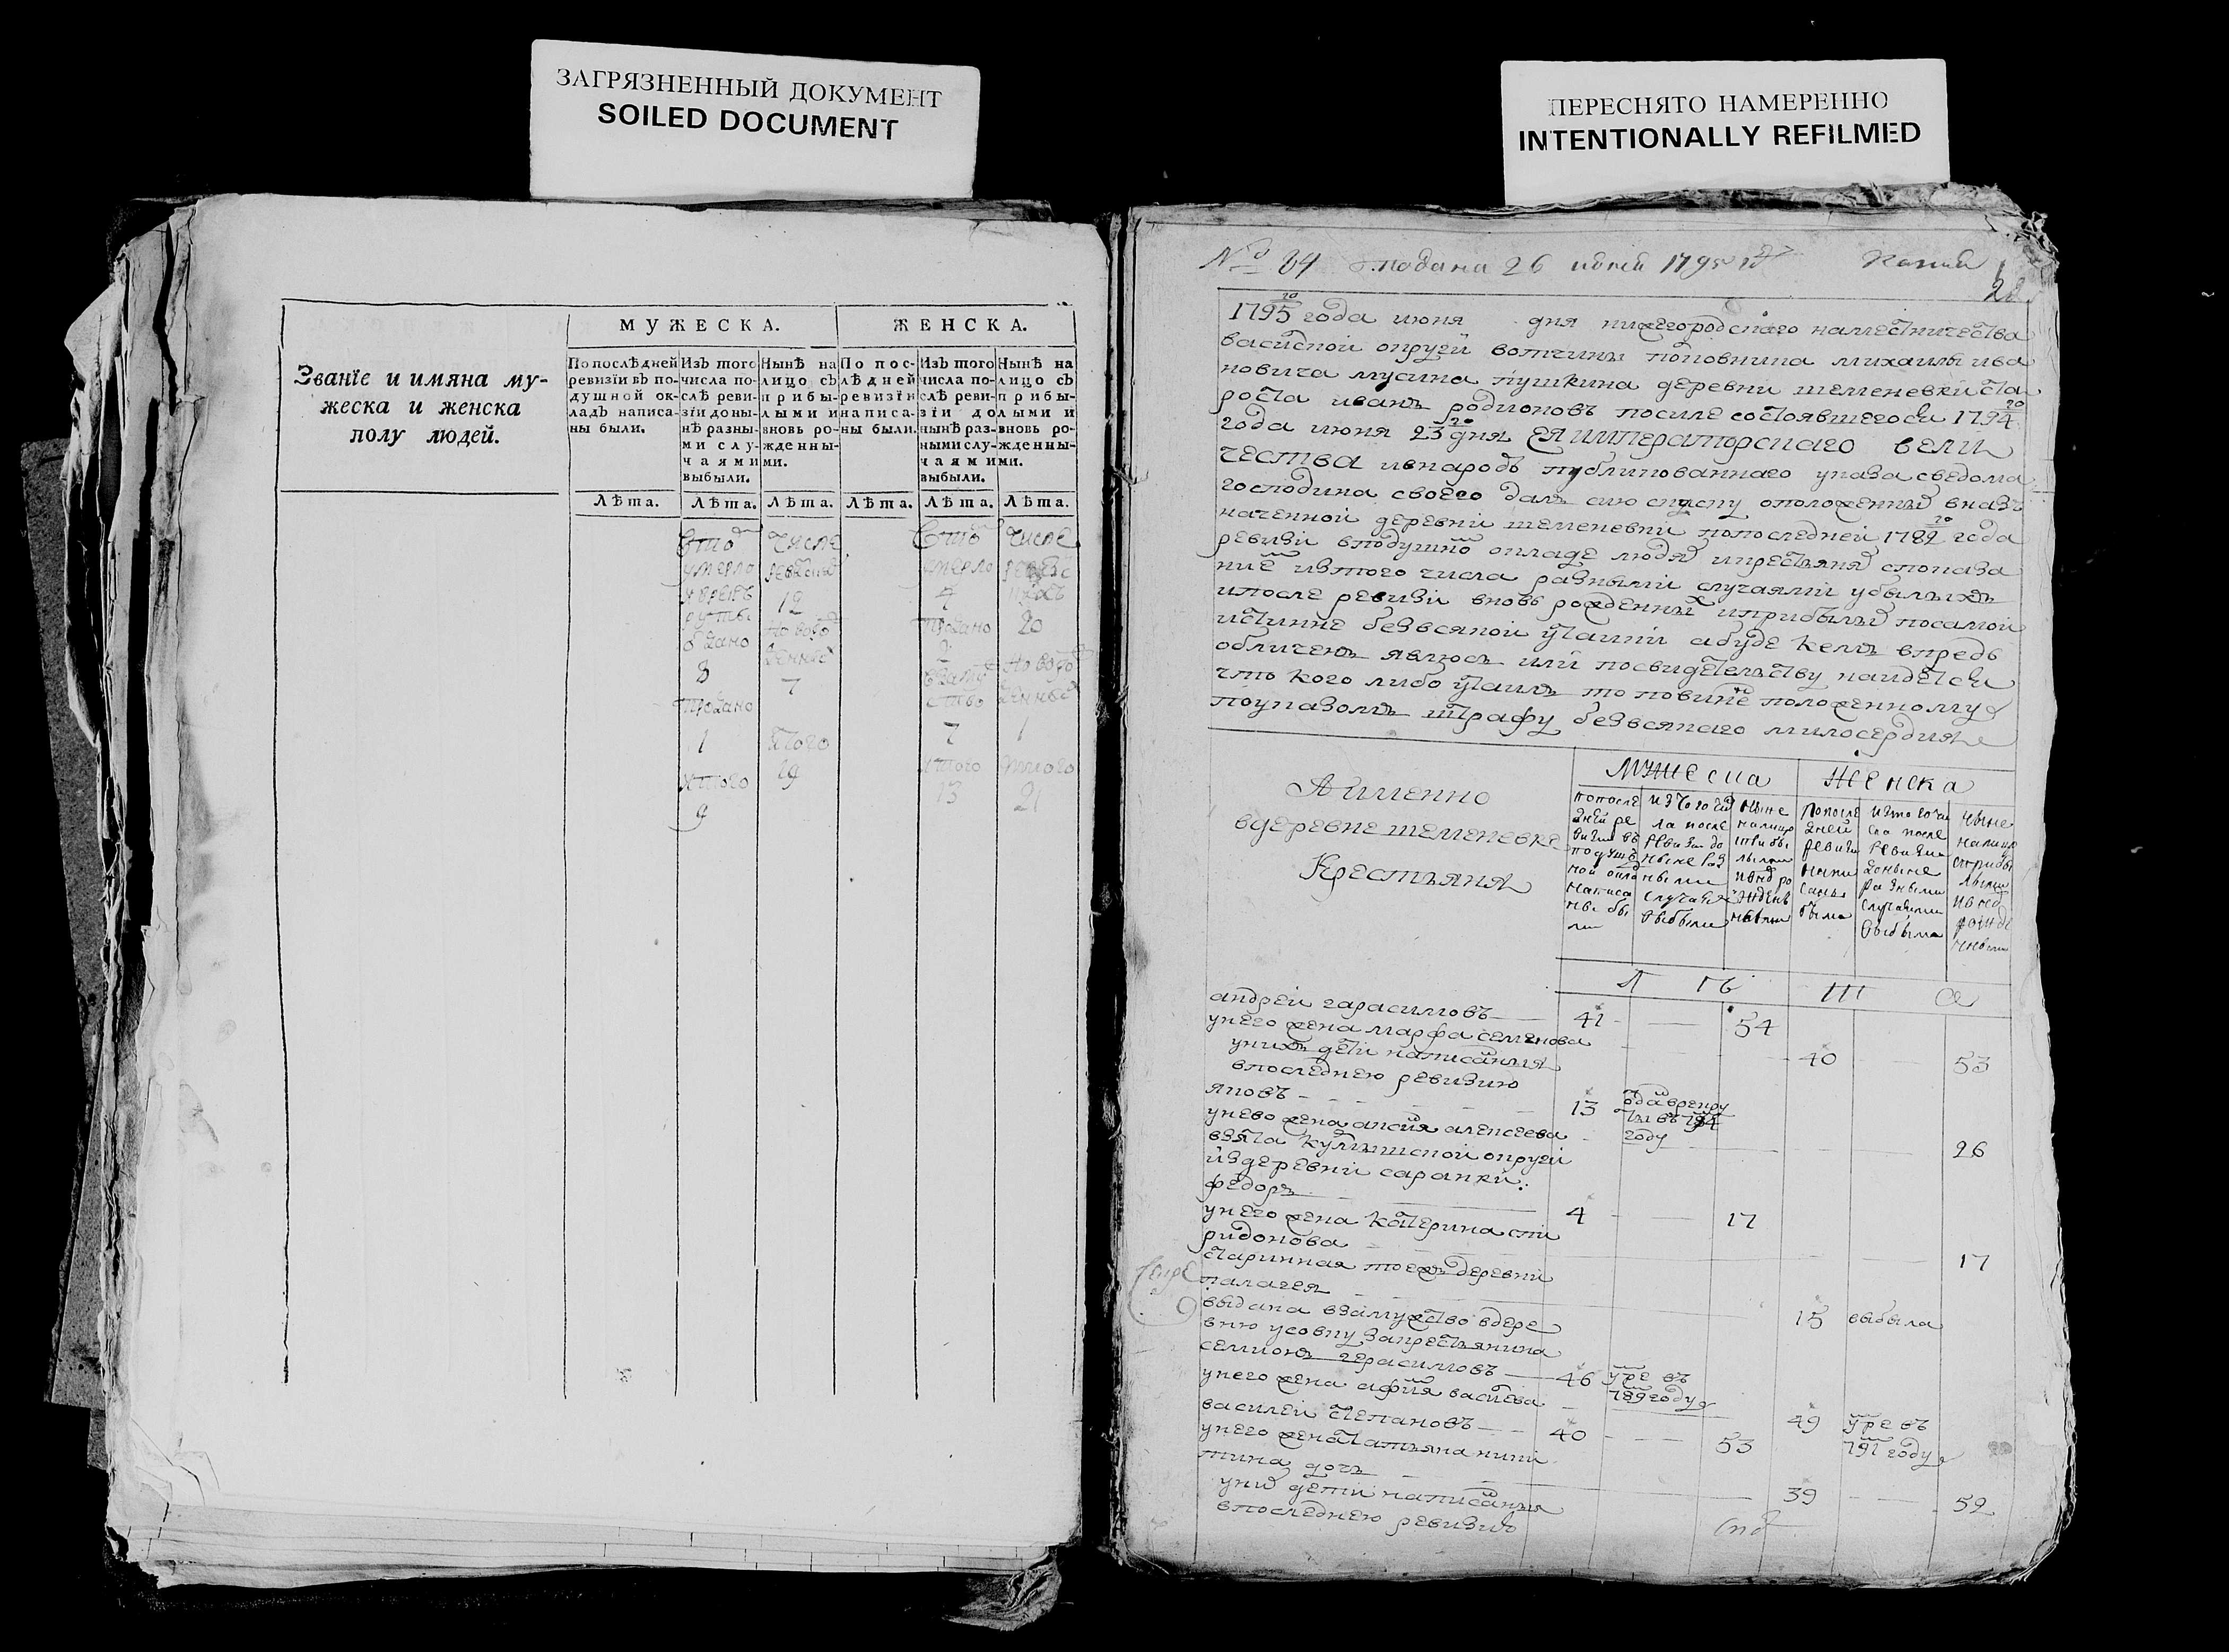 ЗАГРЯЗНЕННЫЙ ДОКУМЕНТ
SOILED DOCUMENT
ПЕРЕСНЯТО НАМЕРЕННО
INTENTIONALLY REFILMED
МУЖЕСКА.
ЖЕНСКА.
Званїе и имяна му-
жеска и женска
полу людей.
По послѣдней
ревизїи въ по-
душной ок-
ладъ написа-
ны были.
Изъ того
числа по-
слѣ реви-
зїи доны-
нѣ разны-
ми слу-
чаями
выбыли.
Нынѣ на
лицо съ
прибы-
лыми и
вновь ро-
жденны-
ми.
По пос-
лѣдней
ревизїи
написа-
ны были.
Изъ того
числа по-
слѣ реви-
зїи до
нынѣ раз-
ными слу-
чаями
выбыли.
Нынѣ на
лицо съ
прибы-
лыми и
вновь ро-
жденны-
ми.
Лѣта. Лѣта. Лѣта. Лѣта. Лѣта. Лѣта.
умерло
12
7
20
8
7
1
7
1
итого
итого
итого
итого
19
13
21
9
№ 84 подана 26 июня 1795 года
1795 года июня дня нижегородскаго наместничества
васильской округи вотчины полковника михаилы ива
новича мусина пушкина деревни шеменевки ста
роста иванъ родионовъ после состоявшегося 1794
года июня 23 дня ея императорскаго вели
чества и внародъ публикованнаго указа сведома
господина своего далъ сию скаску о положенных в назъ
наченной деревни шеменевки по последней 1782 года
ревизи в подушном окладе людях и крестьянях с показа
ние из того числа разными случаями убылыхъ
и после ревизи вновь рожденных и прибылых по самой
истинне без всякой утайки а буде кемъ впредь
обличенъ явлюсь или по свидетельству найдется
что кого либо утаилъ то повинен положенному
по указомъ штрафу без всякаго милосердия
А именно
в деревне шеменевке
Крестьяня
Мужеска
Женска
по после
дней ре
визии въ
подуш
ной окла
написа
ны бы
ли
из того чис
ла после
ревизии до
ныне раз
ными
случаями
выбыли
ныне
налицо
с прибы
лыми
и внов ро
жденъ
ными
по после
дней
ревизии
напи
саны
были
из того чи
сла после
ревизии
доныне
разными
случаями
выбыла
ныне
налицо
с прибы
лыми
и внов
рожде
нными
Л ѣ т а
андреи гарасимовъ 41 54
у него жена марфа семенова 40 53
у нихъ дети написанныя
в последнею ревизию
яковъ 13 отдан в рекру
ты въ 794
году
у него жена аксинья алексеева 26
взята курмышской округи
из деревни саранки
федоръ 4 17
у него жена катерина спи
ридонова 17
старинная тоежъ деревни
палагея 15 выбыла
выдана в замужство в дере
вню усовку за крестьянина
семионъ герасимовъ 46 умре въ
789 году
у него жена афимья васильева 49 умре въ
791 году
василеи степановъ 40 53
у него жена татьяна ники
тина дочь 39 52
у них дети написанныя
в последнею ревизию